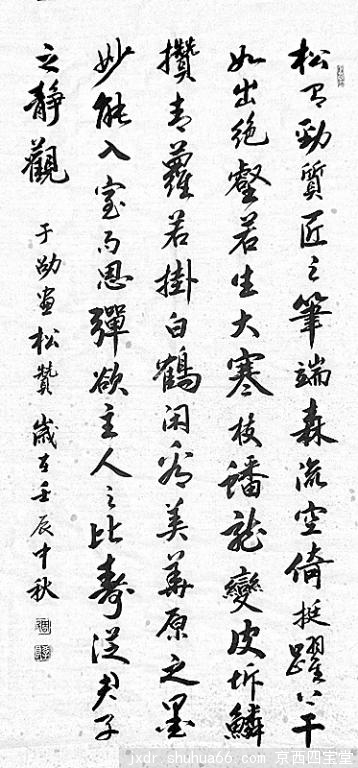 松有勁質匠之筆端森流空倚挺躍上干
如出絕壑若生大寒枝蟠龍變皮坼鱗
攢青蘿若掛白鶴閑看美華原之墨
妙能入室而思彈欲主人之比壽從夫子
之靜觀 于邵畫松贊 歲在壬辰中秋
jxdr.shuhua66.com 京西四宝堂